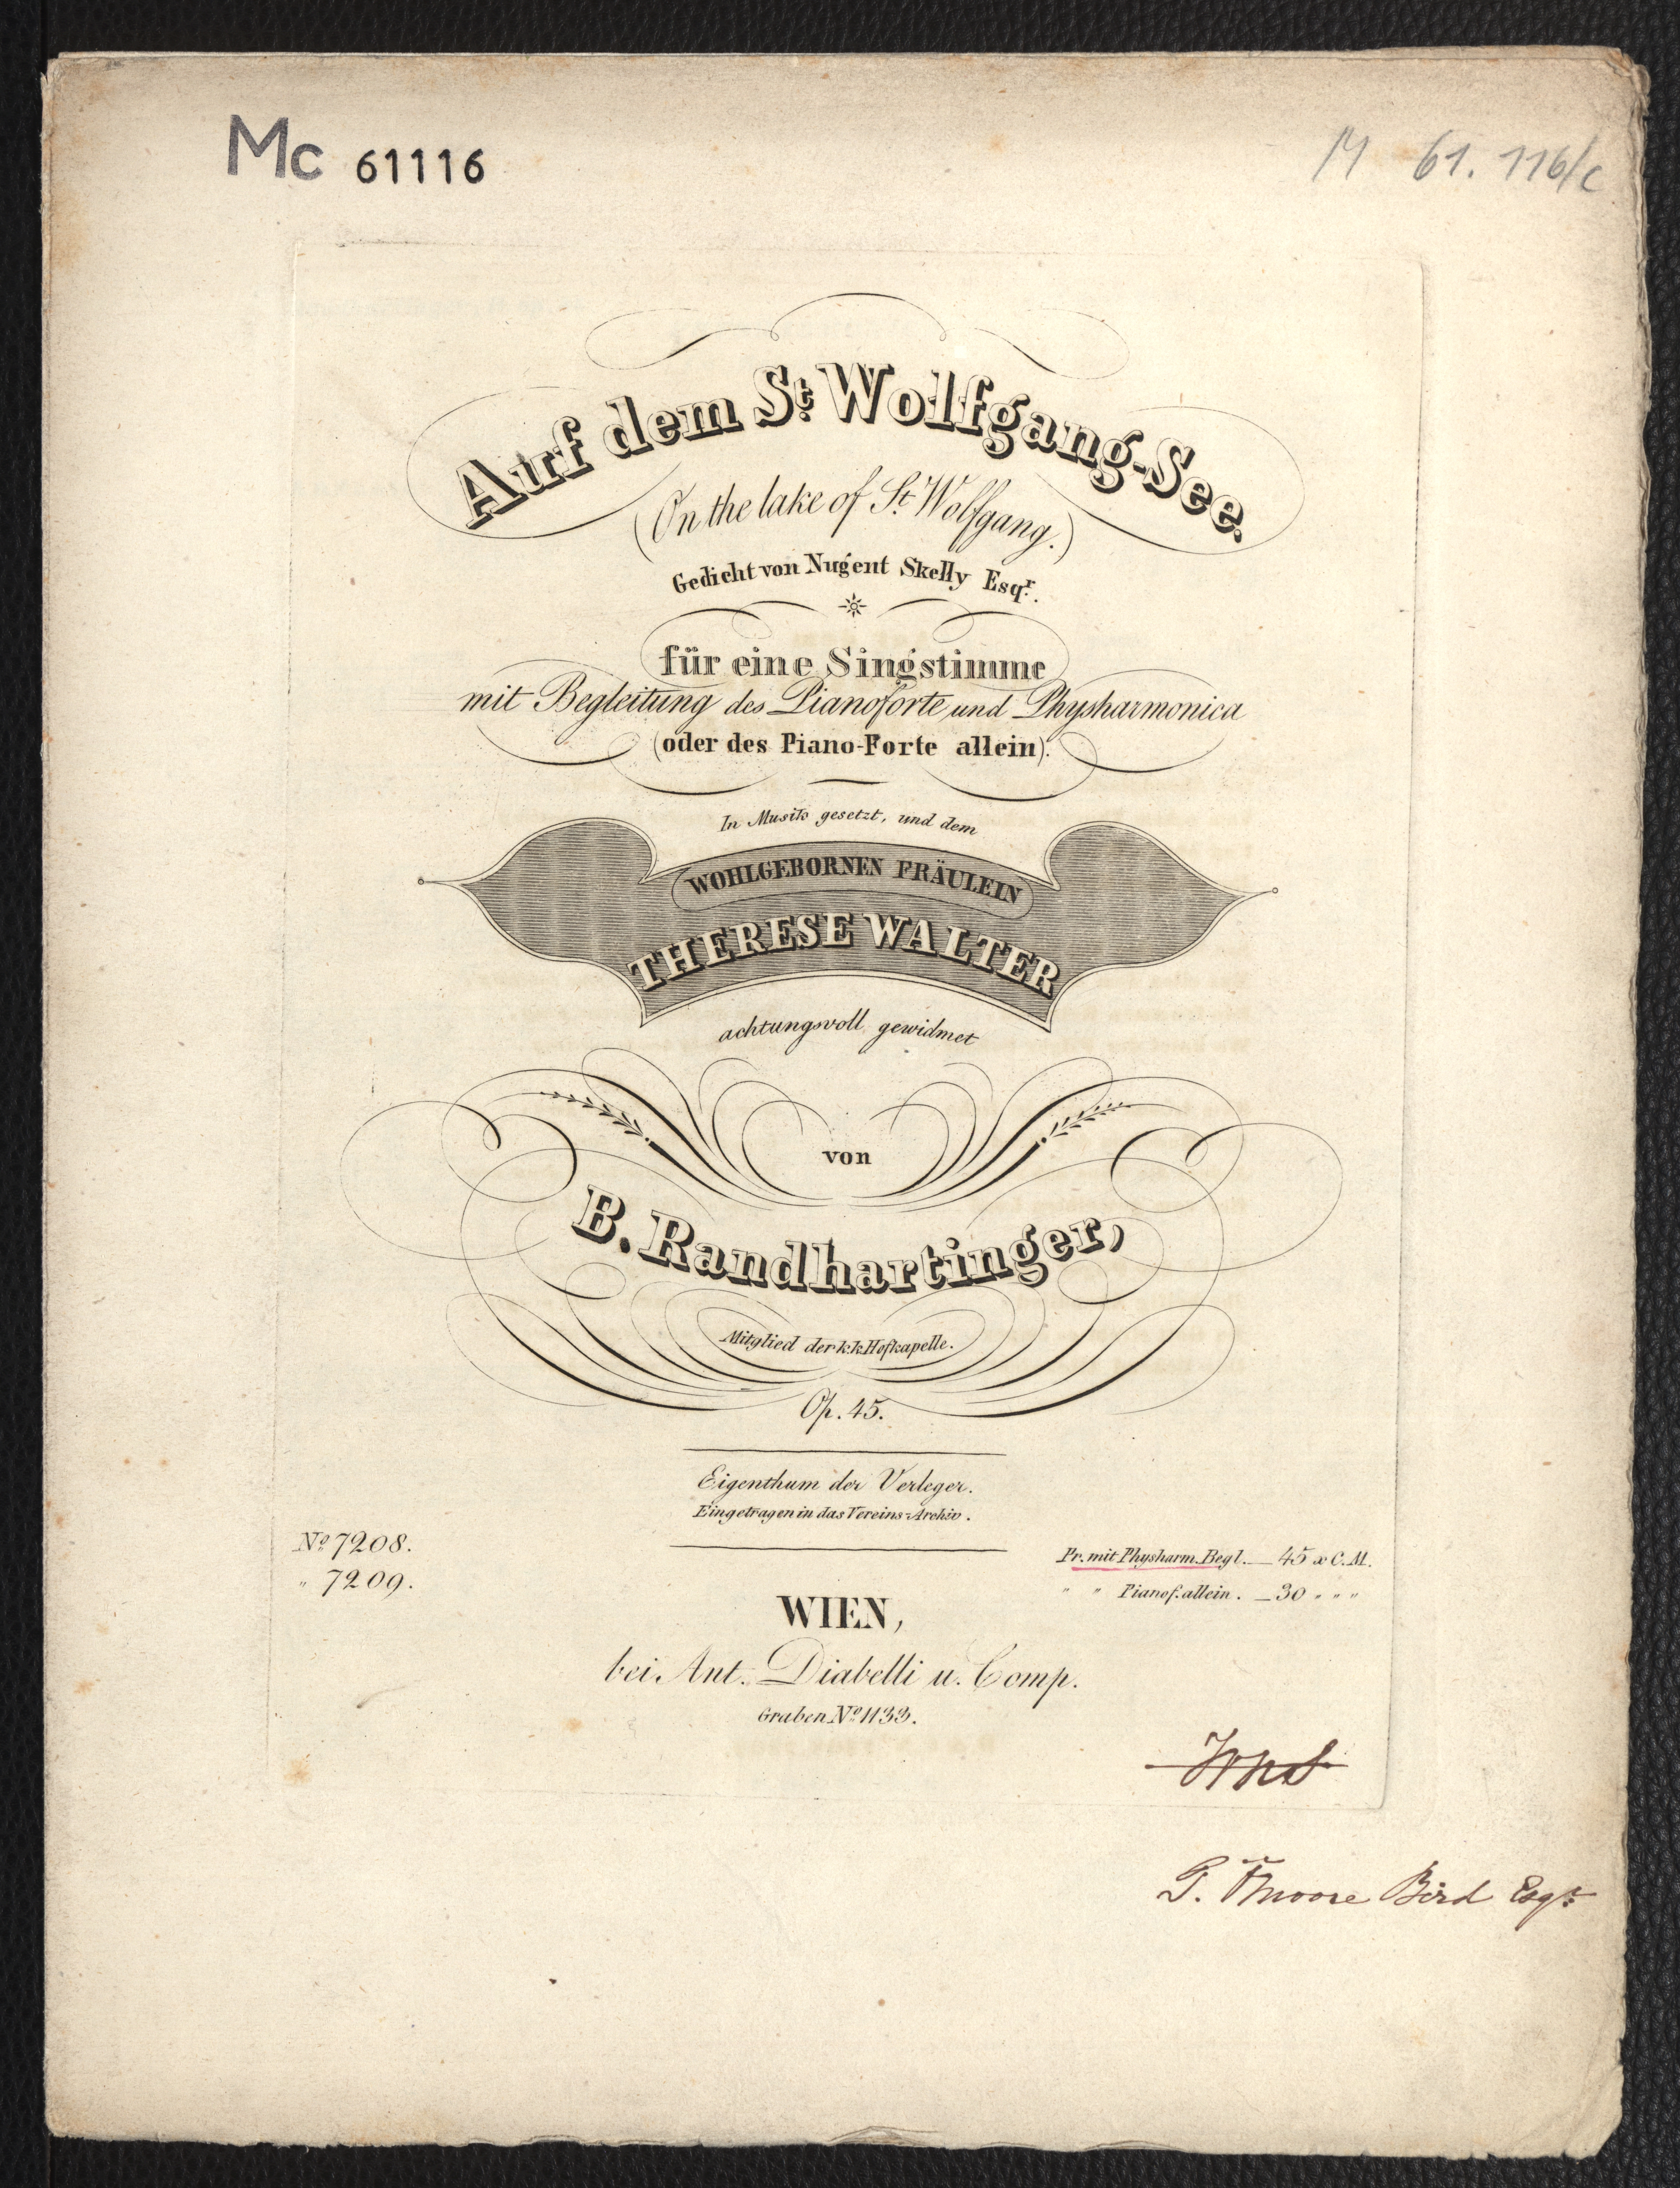 Mc 61116
M 61.116/c
Auf dem St. Wolfgang-See.
(On the lake of St. Wolfgang.)
Gedicht von Nugent Skelly Esqr.
für eine Singstimme
mit Begleitung des Pianoforte und Physharmonica
(oder des Piano-Forte allein).
In Musik gesetzt, und dem
WOHLGEBORNEN FRÄULEIN
THERESE WALTER
achtungsvoll gewidmet
von
B. Randhartinger,
Mitglied der k.k. Hofkapelle.
Op. 45.
Eigenthum der Verleger.
Eingetragen in das Vereins-Archiv.
No 7208.
" 7209.
Pr. mit Physharm. Begl. — 45 x C.M.
" " Pianof. allein. — 30 " " "
WIEN,
bei Ant. Diabelli u. Comp.
Graben No 1133.
Moore Bird Esqr